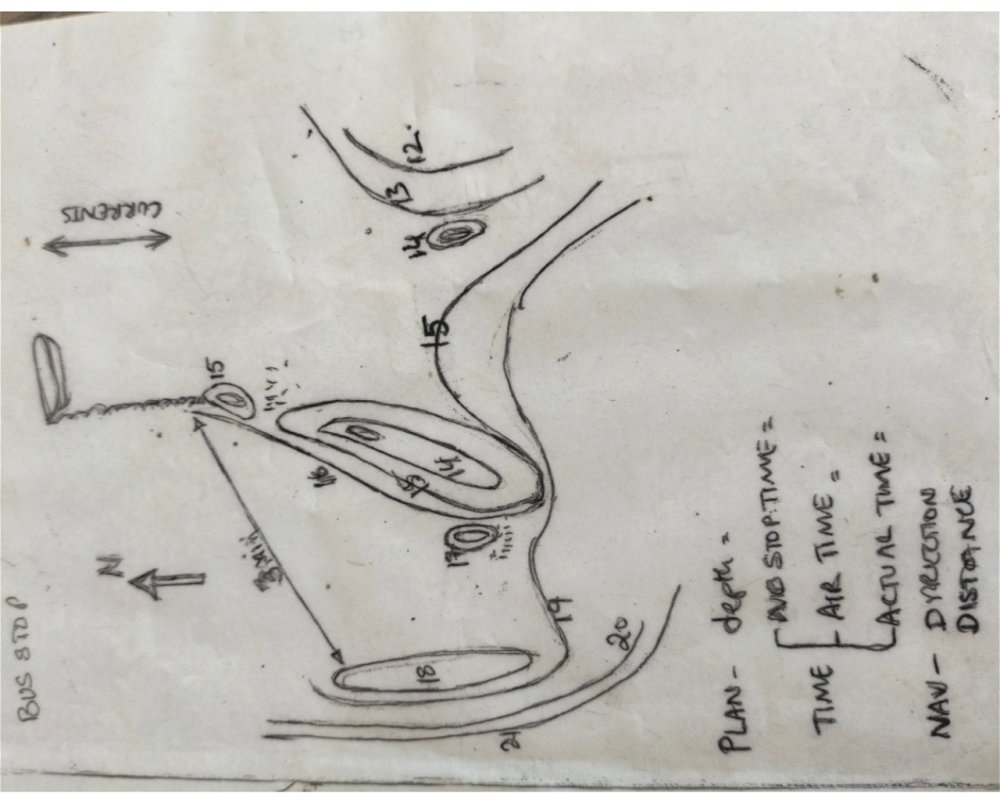 BUS STOP
N
CURRENTS
15
16
15
14
17
18
14
13
12
15
19
20
21
PLAN - depth =
TIME
STOP.TIME =
AIR TIME =
ACTUAL TIME =
NAV - DIRECTION
DISTANCE